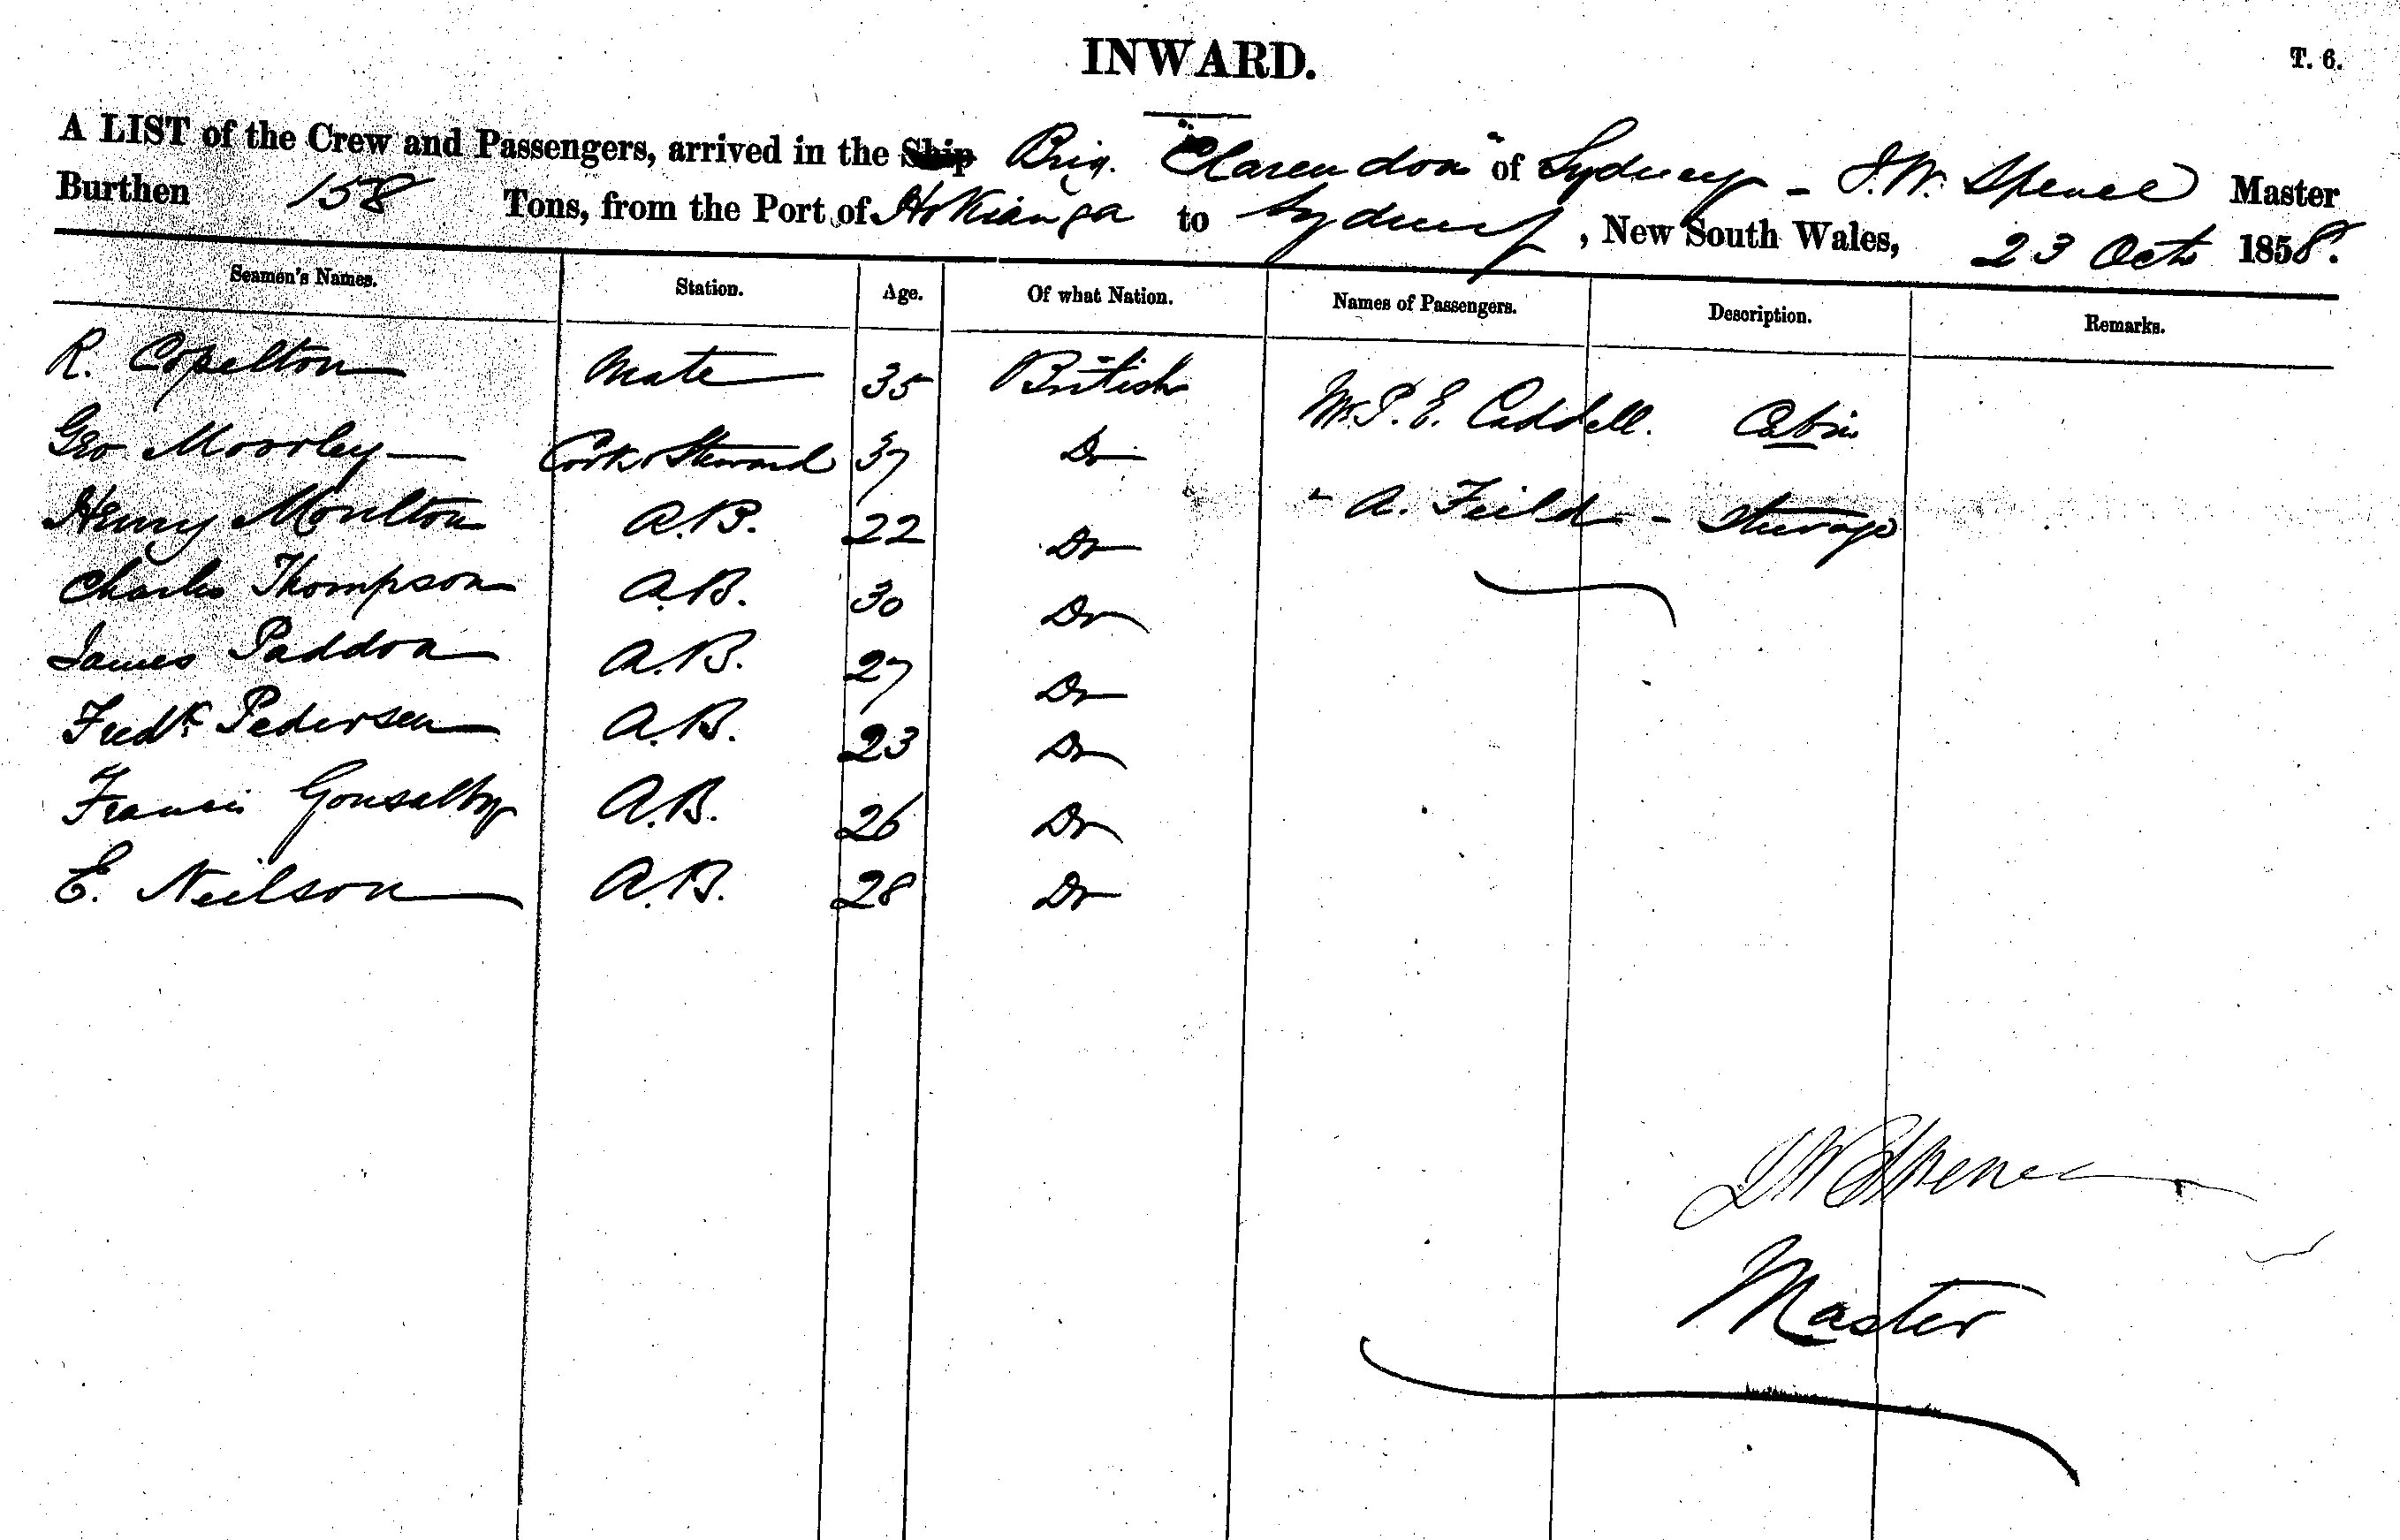 INWARD.
T. 6.
A LIST of the Crew and Passengers, arrived in the Ship Brig. "Clarendon" of Sydney - J. W. Spence Master
Burthen 158 Tons, from the Port of Hokianga to Sydney, New South Wales, 23 Oct 1858.
Seamen's Names. Station. Age. Of what Nation. Names of Passengers. Description. Remarks.
R. Copelton Mate 35 British Mr. P. E. Caddell. Cabin
Geo Moorley Cook & Steward 37 Do
Henry Moulton A.B. 22 Do " A. Feild - Steerage
Charles Thompson A.B. 30 Do
James Paddon A.B. 27 Do
Fredk Pedersen A.B. 23 Do
Francis A.B. 26 Do
E. Neilson A.B. 28 Do
J W Spence
Master